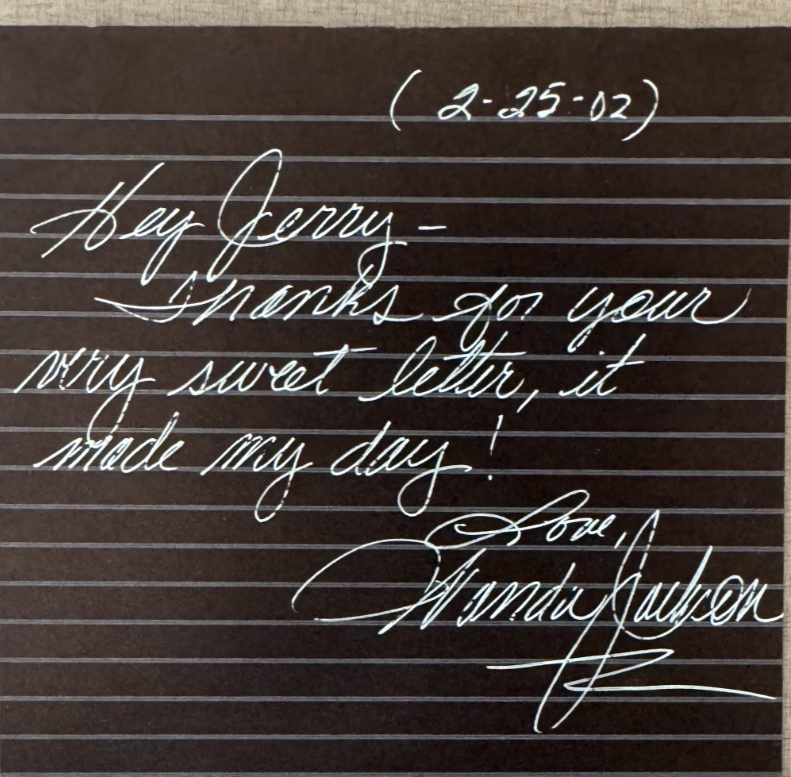 (2-25-02)
Hey Jerry-
Thanks for your
very sweet letter, it
made my day!
Love,
Wanda Jackson